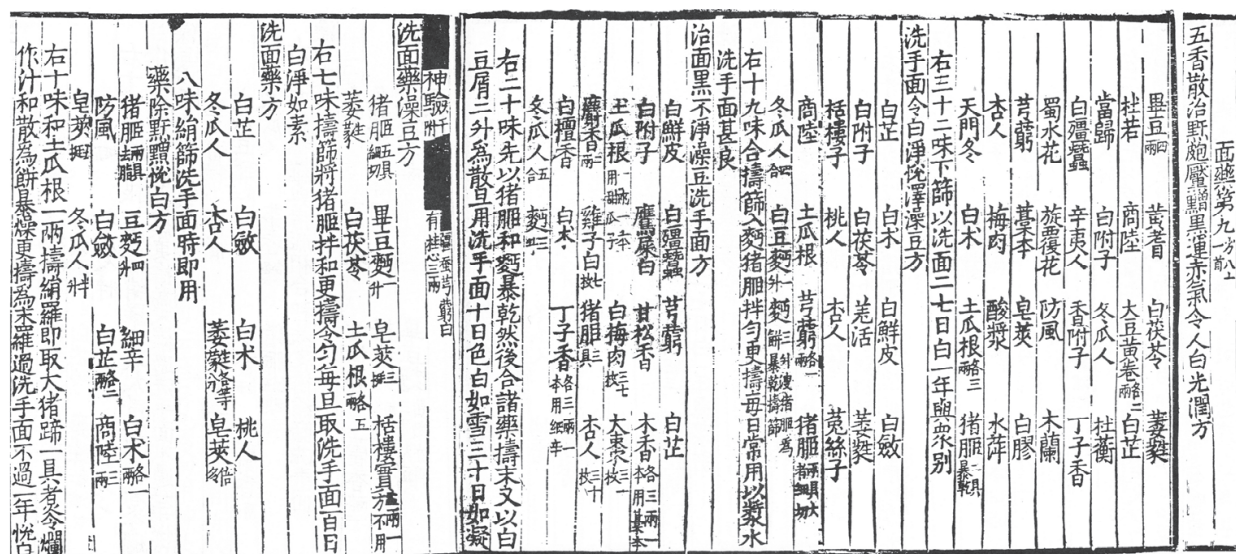 面藥第九 方八十一首
五香散治䵟皰黶䵳黑運赤氣令人白光潤方
畢豆四兩 黃耆 白茯苓 萎蕤
杜若 商陸 大豆黃卷各二兩 白芷
當歸 白附子 冬瓜人 杜衡
白殭蠶 辛夷人 香附子 丁子香
蜀水花 旋覆花 防風 木蘭
芎藭 藁本 皂莢 白膠
杏人 梅肉 酸漿 水萍
天門冬 白朮 土瓜根各三兩 猪胰二具暴乾
右三十二味下篩以洗面二七日白一年與衆別
洗手面令白淨悅澤澡豆方
白芷 白朮 白鮮皮 白斂
白附子 白茯苓 羌活 萎蕤
栝樓子 桃人 杏人 菟絲子
商陸 土瓜根 芎藭各一兩 猪胰兩具大者細切
冬瓜人四合 白豆麪一升 麪三升溲猪胰為餅暴乾擣篩
右十九味合擣篩入麪猪胰拌勻更擣每日常用以漿水
洗手面甚良
治面黑不淨澡豆洗手面方
白鮮皮 白殭蠶 芎藭 白芷
白附子 鷹屎白 甘松香 木香各三兩一本用藁本
土瓜根一兩一本用甜瓜子 白梅肉三七枚 大棗三十枚
麝香二兩 雞子白七枚 猪胰三具 杏人三十枚
白檀香 白朮 丁子香各三兩一本用細辛
冬瓜人五合 麪三升
右二十味先以猪胰和麪暴乾然後合諸藥擣末又以白
豆屑二升為散旦用洗手面十日色白如雪三十日如凝
脂神驗千金翼無白殭蠶芎藭白附子大棗有桂心三兩
洗面藥澡豆方
猪胰五具細切 畢豆麪一升 皂莢三挺 栝樓實三兩一方不用
萎蕤 白茯苓 土瓜根各五兩
右七味擣篩將猪胰拌和更擣令勻每旦取洗手面百日
白淨如素
洗面藥方
白芷 白斂 白朮 桃人
冬瓜人 杏人 萎蕤各等分 皂莢倍多
八味絹篩洗手面時即用
藥除䵟䵳悅白方
猪胰兩具去脂 豆麪四升 細辛 白朮各一兩
防風 白斂 白芷各二兩 商陸三兩
皂莢五挺 冬瓜人半升
右十味和土瓜根一兩擣絹羅即取大猪蹄一具煮令爛
作汁和散為餅暴燥更擣為末羅過洗手面不過一年悅白